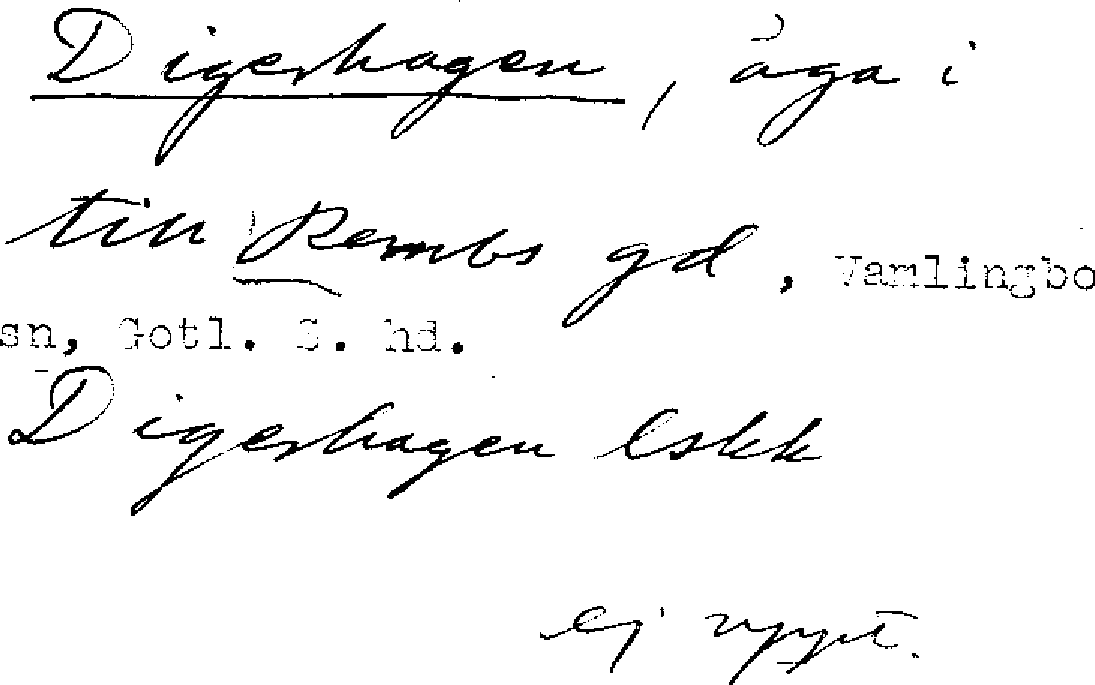 Digerhagen, äga i
till Rembs gd, Vamlingbo
sn, Gotl. S. hd.
Digerhagen lskk
ej uppt.